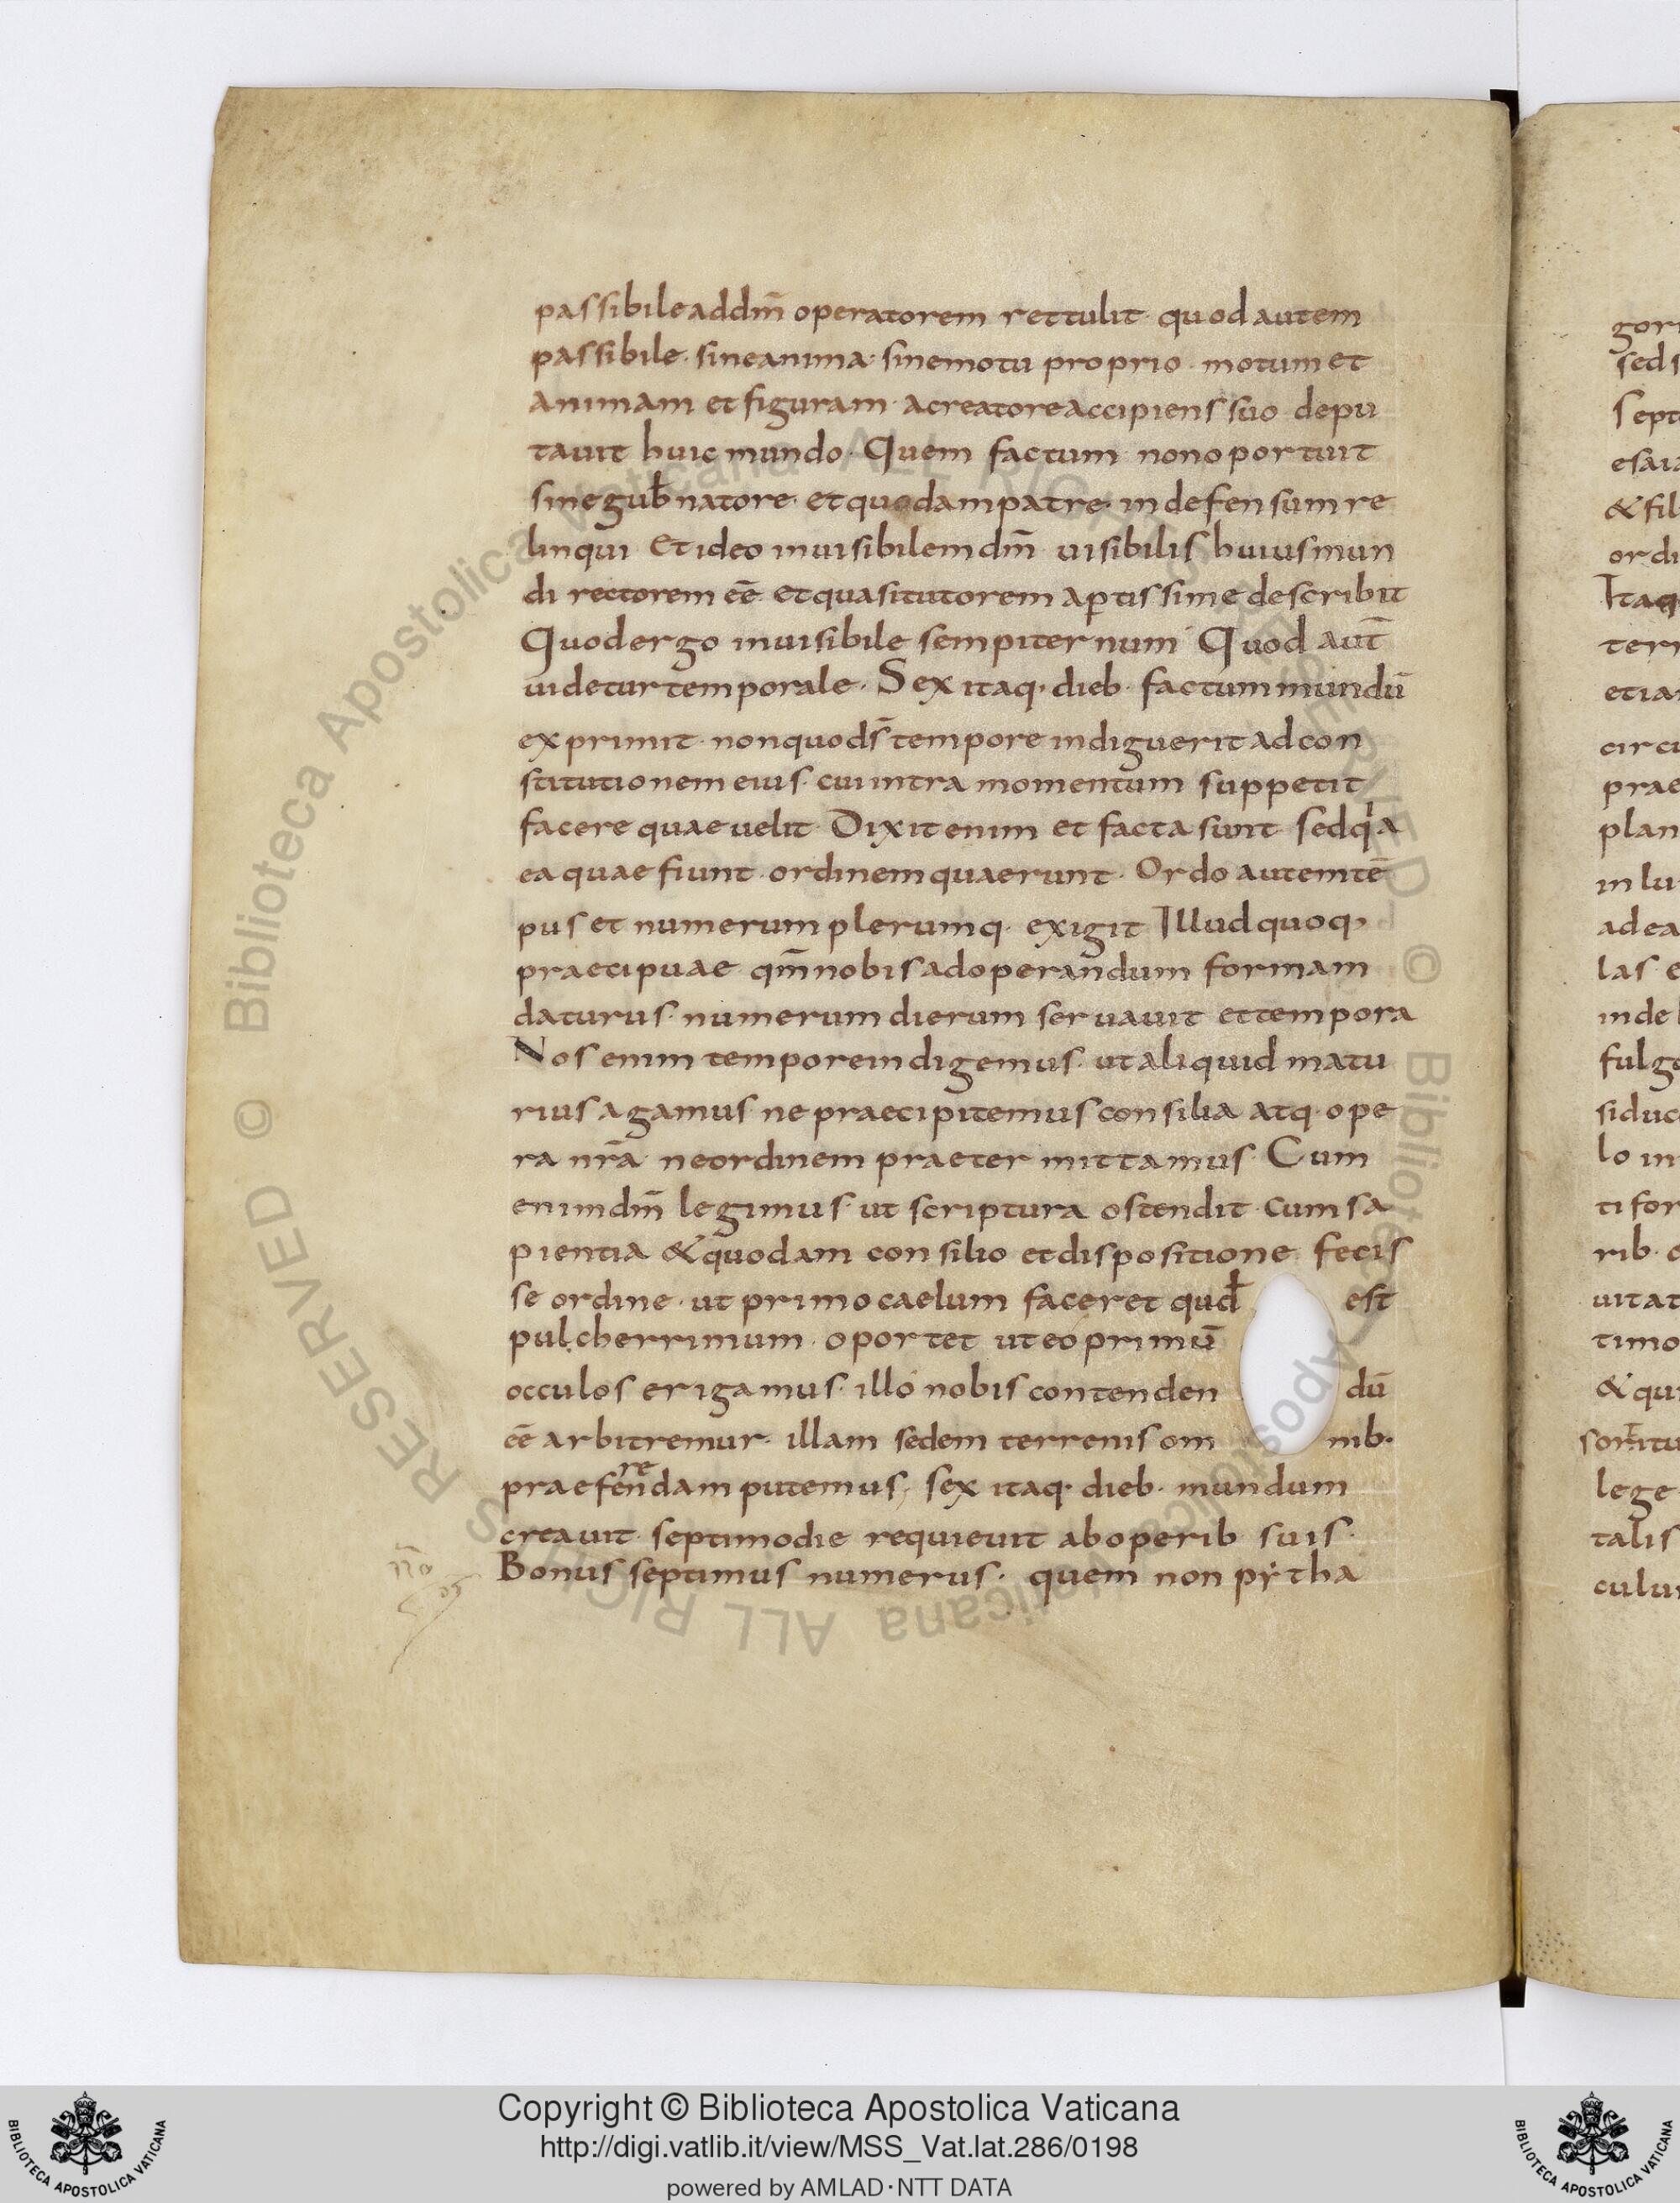 passibile ad dm̄ operatorem rettulit· quod autem
passibile· sine anima· sine motu proprio· motum et
animam et figuram· a creatore accipiens suo depu
tauit huic mundo· Quem factum non oportuit
sine gub̄natore· et quodam patre· indefensum re
linqui Et ideo inuisibilem dm̄ uisibilis huius mun
di rectorem eē· et quasi tutorem aptissime describit
Quod ergo inuisibile sempiternum· Quod aut̄
uidetur temporale· Sex itaq· dieb· factum mundū
exprimit· non quod ds̄ tempore indiguerit ad con
stitutionem eius· cui intra momentum suppetit
facere quae uelit· Dixit enim et facta sunt· sed qia
ea quae fiunt· ordinem quaerunt· Ordo autem tē
pus et numerum plerumq· exigit Illud quoq,
praecipuae qm̄ nobis ad operandum formam
daturus· numerum dierum seruauit et tempora
Nos enim tempore indigemus· ut aliquid matu
rius agamus· ne praecipitemus consilia atq· ope
ra nr̄a· ne ordinem praetermittamus· Cum
enim dm̄ legimus· ut scriptura ostendit· cum sa
pientia & quodam consilio et dispositione fecis
se ordine· ut primo caelum faceret qud̄ est
pulcherrimum· oportet ut eo primū
occulos erigamus· illo nobis contenden dū
eē arbitremur· illam sedem terrenis om nib·
praeferendam putemus· sex itaq· dieb· mundum
creauit· septimo die requieuit ab operib suis·
Bonus septimus numerus· quem non pẏtha
gor
sed s
Sept
esaia
& fil
ordi
Itaq
terr
etia
circu
prae
plan
in lu
ad ea
las e
inde
fulg
siduc
lo in
ti for
rib· 
uitat
timo
& qui
lege
talis
culu
© Biblioteca Apostolica Vaticana ALL RIGHTS RESERVED © Biblioteca Apostolica Vaticana ALL RIGHTS RESERVED
Copyright © Biblioteca Apostolica Vaticana
http://digi.vatlib.it/view/MSS_Vat.lat.286/0198
powered by AMLAD·NTT DATA
BIBLIOTECA APOSTOLICA VATICANA
BIBLIOTECA APOSTOLICA VATICANA